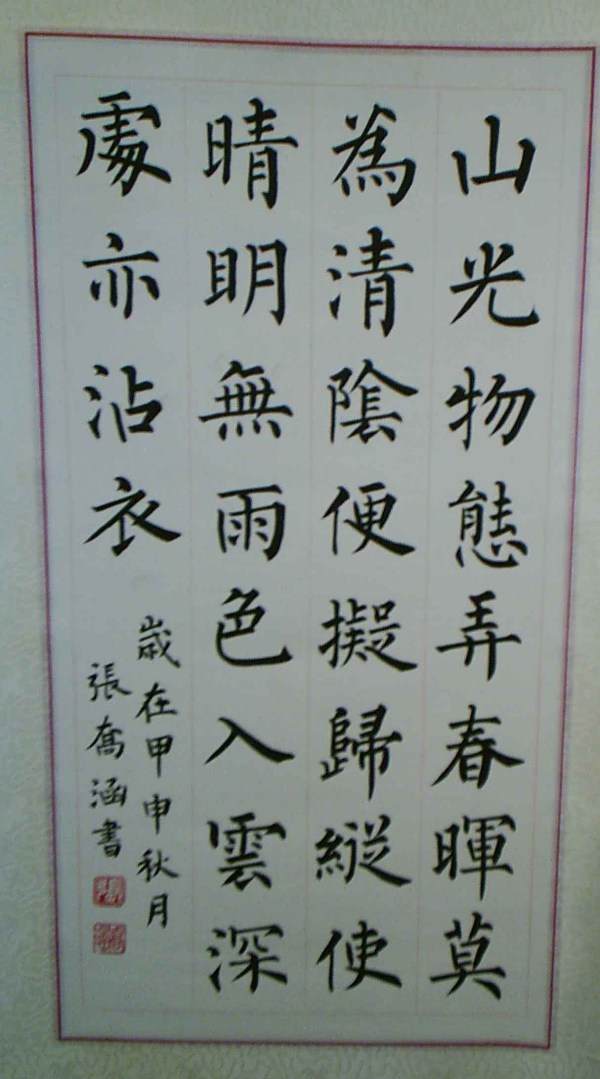 山光物態弄春暉莫
為清陰便擬歸縱使
晴明無雨色入雲深
處亦沾衣
歲在甲申秋月
張喬涵書